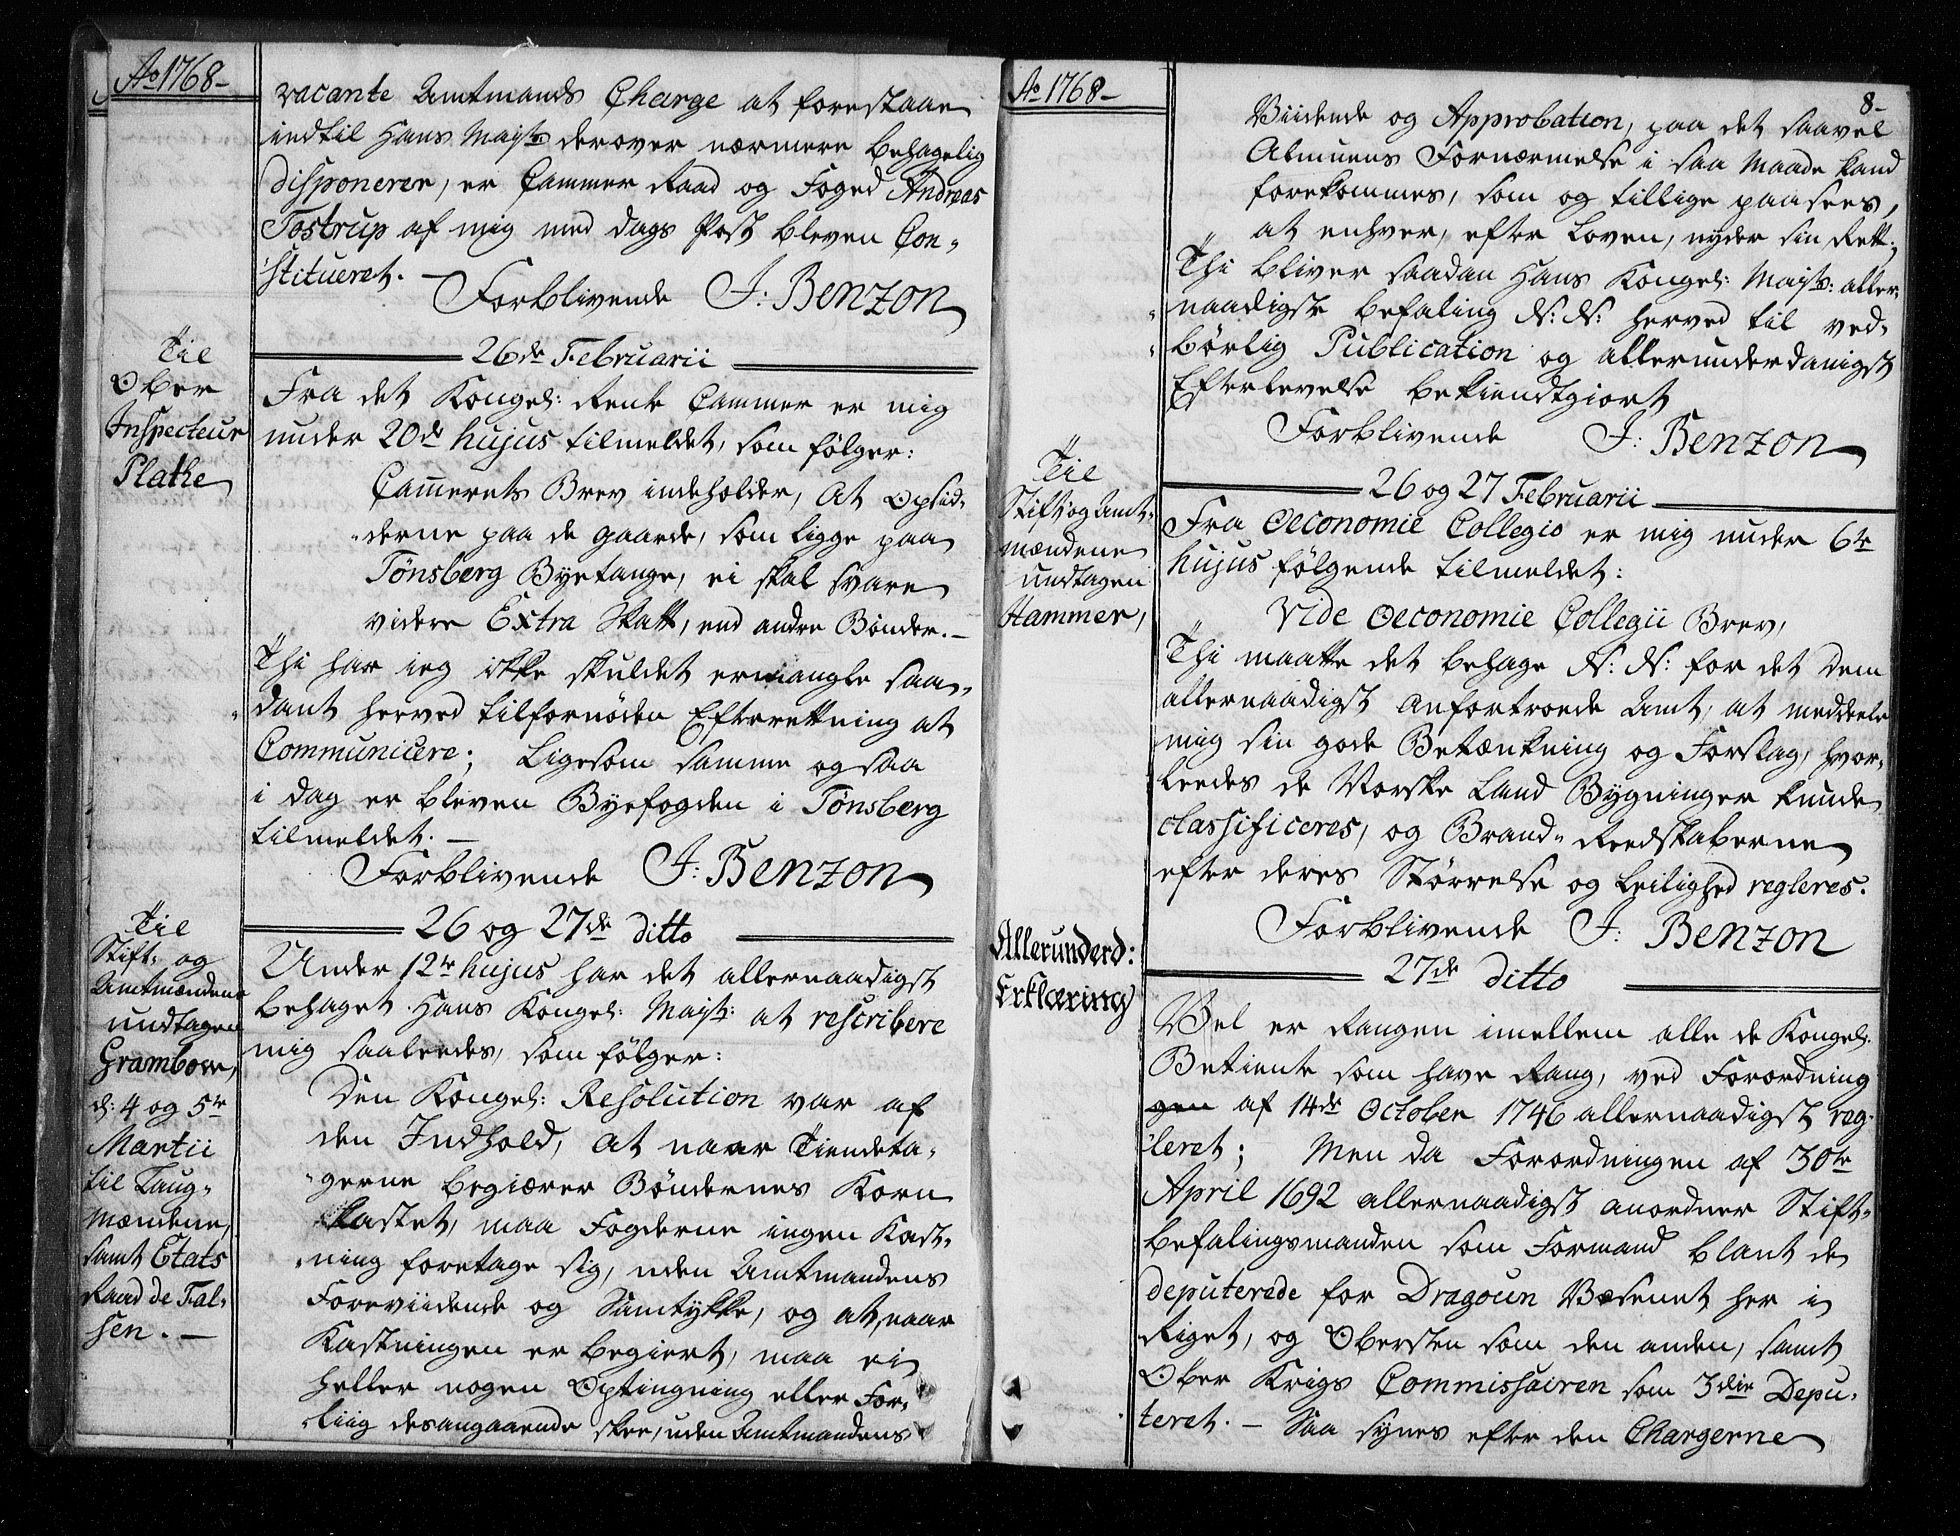 Ao 1768-
vacante Amtmands Charge at forestaae
indtil Hans Majts: derover nærmere behagelig
disponerer, er Cammer Raad og Foged Andreas
Tostrup af mig med dags Post bleven Con-
stitueret. -
Forblivende J: Benzon
26de Februarii
Til
Ober
Inspecteur
Plathe
Fra det Kongel: Rente Cammer er mig
under 20de hujus tilmeldet, som følger:
Camerets Brev indeholder, At Opsid-
derne paa de gaarde, som ligge paa
Tønsberg Byetange, ei skal svare
videre Extra Skatt, end andre Bönder. -
Thi har ieg ikke skuldet ermangle saa-
dant herved til fornöden Efterretning at
Communicere; Ligesom samme ogsaa
i dag er bleven Byefogden i Tønsberg
tilmeldet. -
Forblivende J: Benzon
26 og 27de ditto
Til
Stift- og
Amtmændene
undtagen
Grambow,
d: 4 og 5te
Martii
til Laug-
Mændene,
samt Etats
Raad de Fal-
sen. -
Under 12te hujus har det allernaadigst
behaget Hans Kongel: Majt: at rescribere
mig saaledes, som følger:
Den Kongel: Resolution var af
den Indhold, At naar Tiendeta-
gerne begiærer Bøndernes Korn
kastet, maa Fogderne ingen Kast-
ning foretage sig, uden Amtmandens
Foreviidende og Samtykke, og at, naar
Kastningen er begiert, maa ei
heller nogen Optingning eller For-
liig desangaaende skee, uden Amtmandens
Ao 1768-
8-
Viidende og Approbation, paa det saavel
Almuens Fornærmelse i saa Maade kand
forekommes, som og tillige paasees,
at enhver, efter Loven, nyder sin Rett;
Thi bliver saadan Hans Kongel: Majts: aller-
naadigste befaling N: N: herved til ved-
börlig Publication og allerunderdanigst
Efterlevelse bekiendtgiort
Forblivende J: Benzon
26 og 27 Februarii
Til
Stift og Amt-
mændene
undtagen
Hammer,
Fra Oeconomie Collegio er mig under 6te
hujus følgende tilmeldet:
Vide Oeconomie Collegii Brev,
Thi maatte det behage N: N: for det Dem
allernaadigst anfortroede Amt, at meddeele
mig sin gode Betænkning og Forslag, hvor-
leedes de Norske Land Bygninger kunde
classificeres, og Brand- Reedskaberne
efter deres Størrelse og Leilighed regleres.
Forblivende J: Benzon
27de ditto
Allerunderd:
Erklæring
Vel er Rangen imellem alle de Kongel:
Betiente som have Rang, ved Forordning
gen af 14de October 1746 allernaadigst reg-
leret; Men da Forordningen af 30te
April 1692 allernaadigst anordner Stift-
befalingsmanden som Formand blant de
deputerede for Dragoun Væsenet her i
Riget, og Obersten som den anden, samt
Ober Krigs Commissairen som 3die Depu-
teret. - Saa synes efter den Chargerne